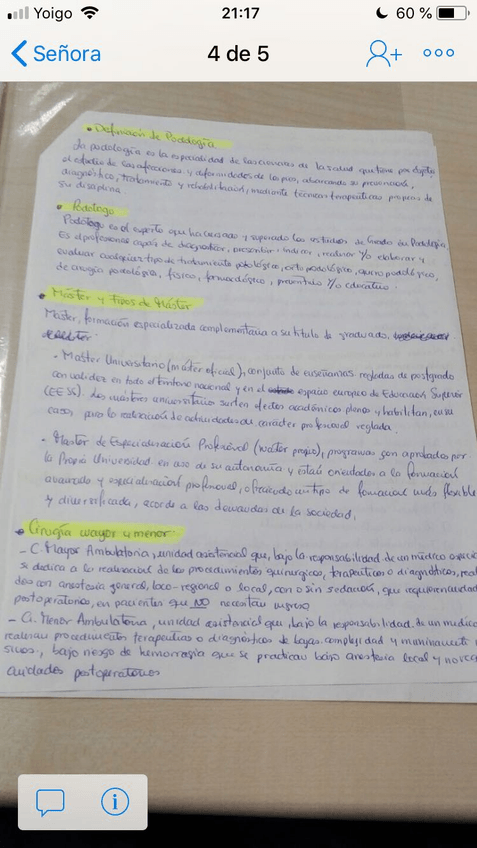 Yoigo 21:17 60 %
Señora 4 de 5
• Definición de Podología
La podología es la especialidad de las ciencias de la salud que tiene por objeto
el estudio de las afecciones y deformidades de los pies, abarcando su prevención,
diagnóstico, tratamiento y rehabilitación, mediante técnicas terapéuticas propias de
su disciplina.
• Podólogo
Podólogo es el experto que ha cursado y superado los estudios de Grado en Podología
Es el profesional capaz de diagnosticar, prescribir, indicar, realizar y/o elaborar y
evaluar cualquier tipo de tratamiento podológico, orto podológico, quiro podológico,
de cirugía podológica, físico, farmacológico, preventivo y/o educativo.
• Máster y tipos de Máster
Máster, formación especializada complementaria a su título de graduado,
• Master Universitario (máster oficial), conjunto de enseñanzas regladas de postgrado
con validez en todo el territorio nacional y en el espacio europeo de Educación Superior
(EEES). Los másteres universitarios surten efectos académicos plenos y habilitan, en su
caso, para la realización de actividades de carácter profesional reglada.
• Master de Especialización Profesional (master propio), programas son aprobados por
la Propia Universidad en uso de su autonomía y están orientados a la formación
avanzada y especialización profesional, ofreciendo un tipo de formación más flexible
y diversificada, acorde a las demandas de la sociedad.
• Cirugía mayor y menor
- C. Mayor Ambulatoria, unidad asistencial que, bajo la responsabilidad de un médico
se dedica a la realización de los procedimientos quirúrgicos, terapéuticos o diagnósticos,
dos con anestesia general, loco-regional o local, con o sin sedación, que requieren
postoperatorios, en pacientes que NO necesitan ingreso
- Ci. Menor Ambulatoria, unidad asistencial que, bajo la responsabilidad de un medico
realizan procedimientos terapeuticos o diagnósticos de baja complejidad y
sivos, bajo riesgo de hemorragia que se practican bajo anestesia local y no
cuidados postoperatorios